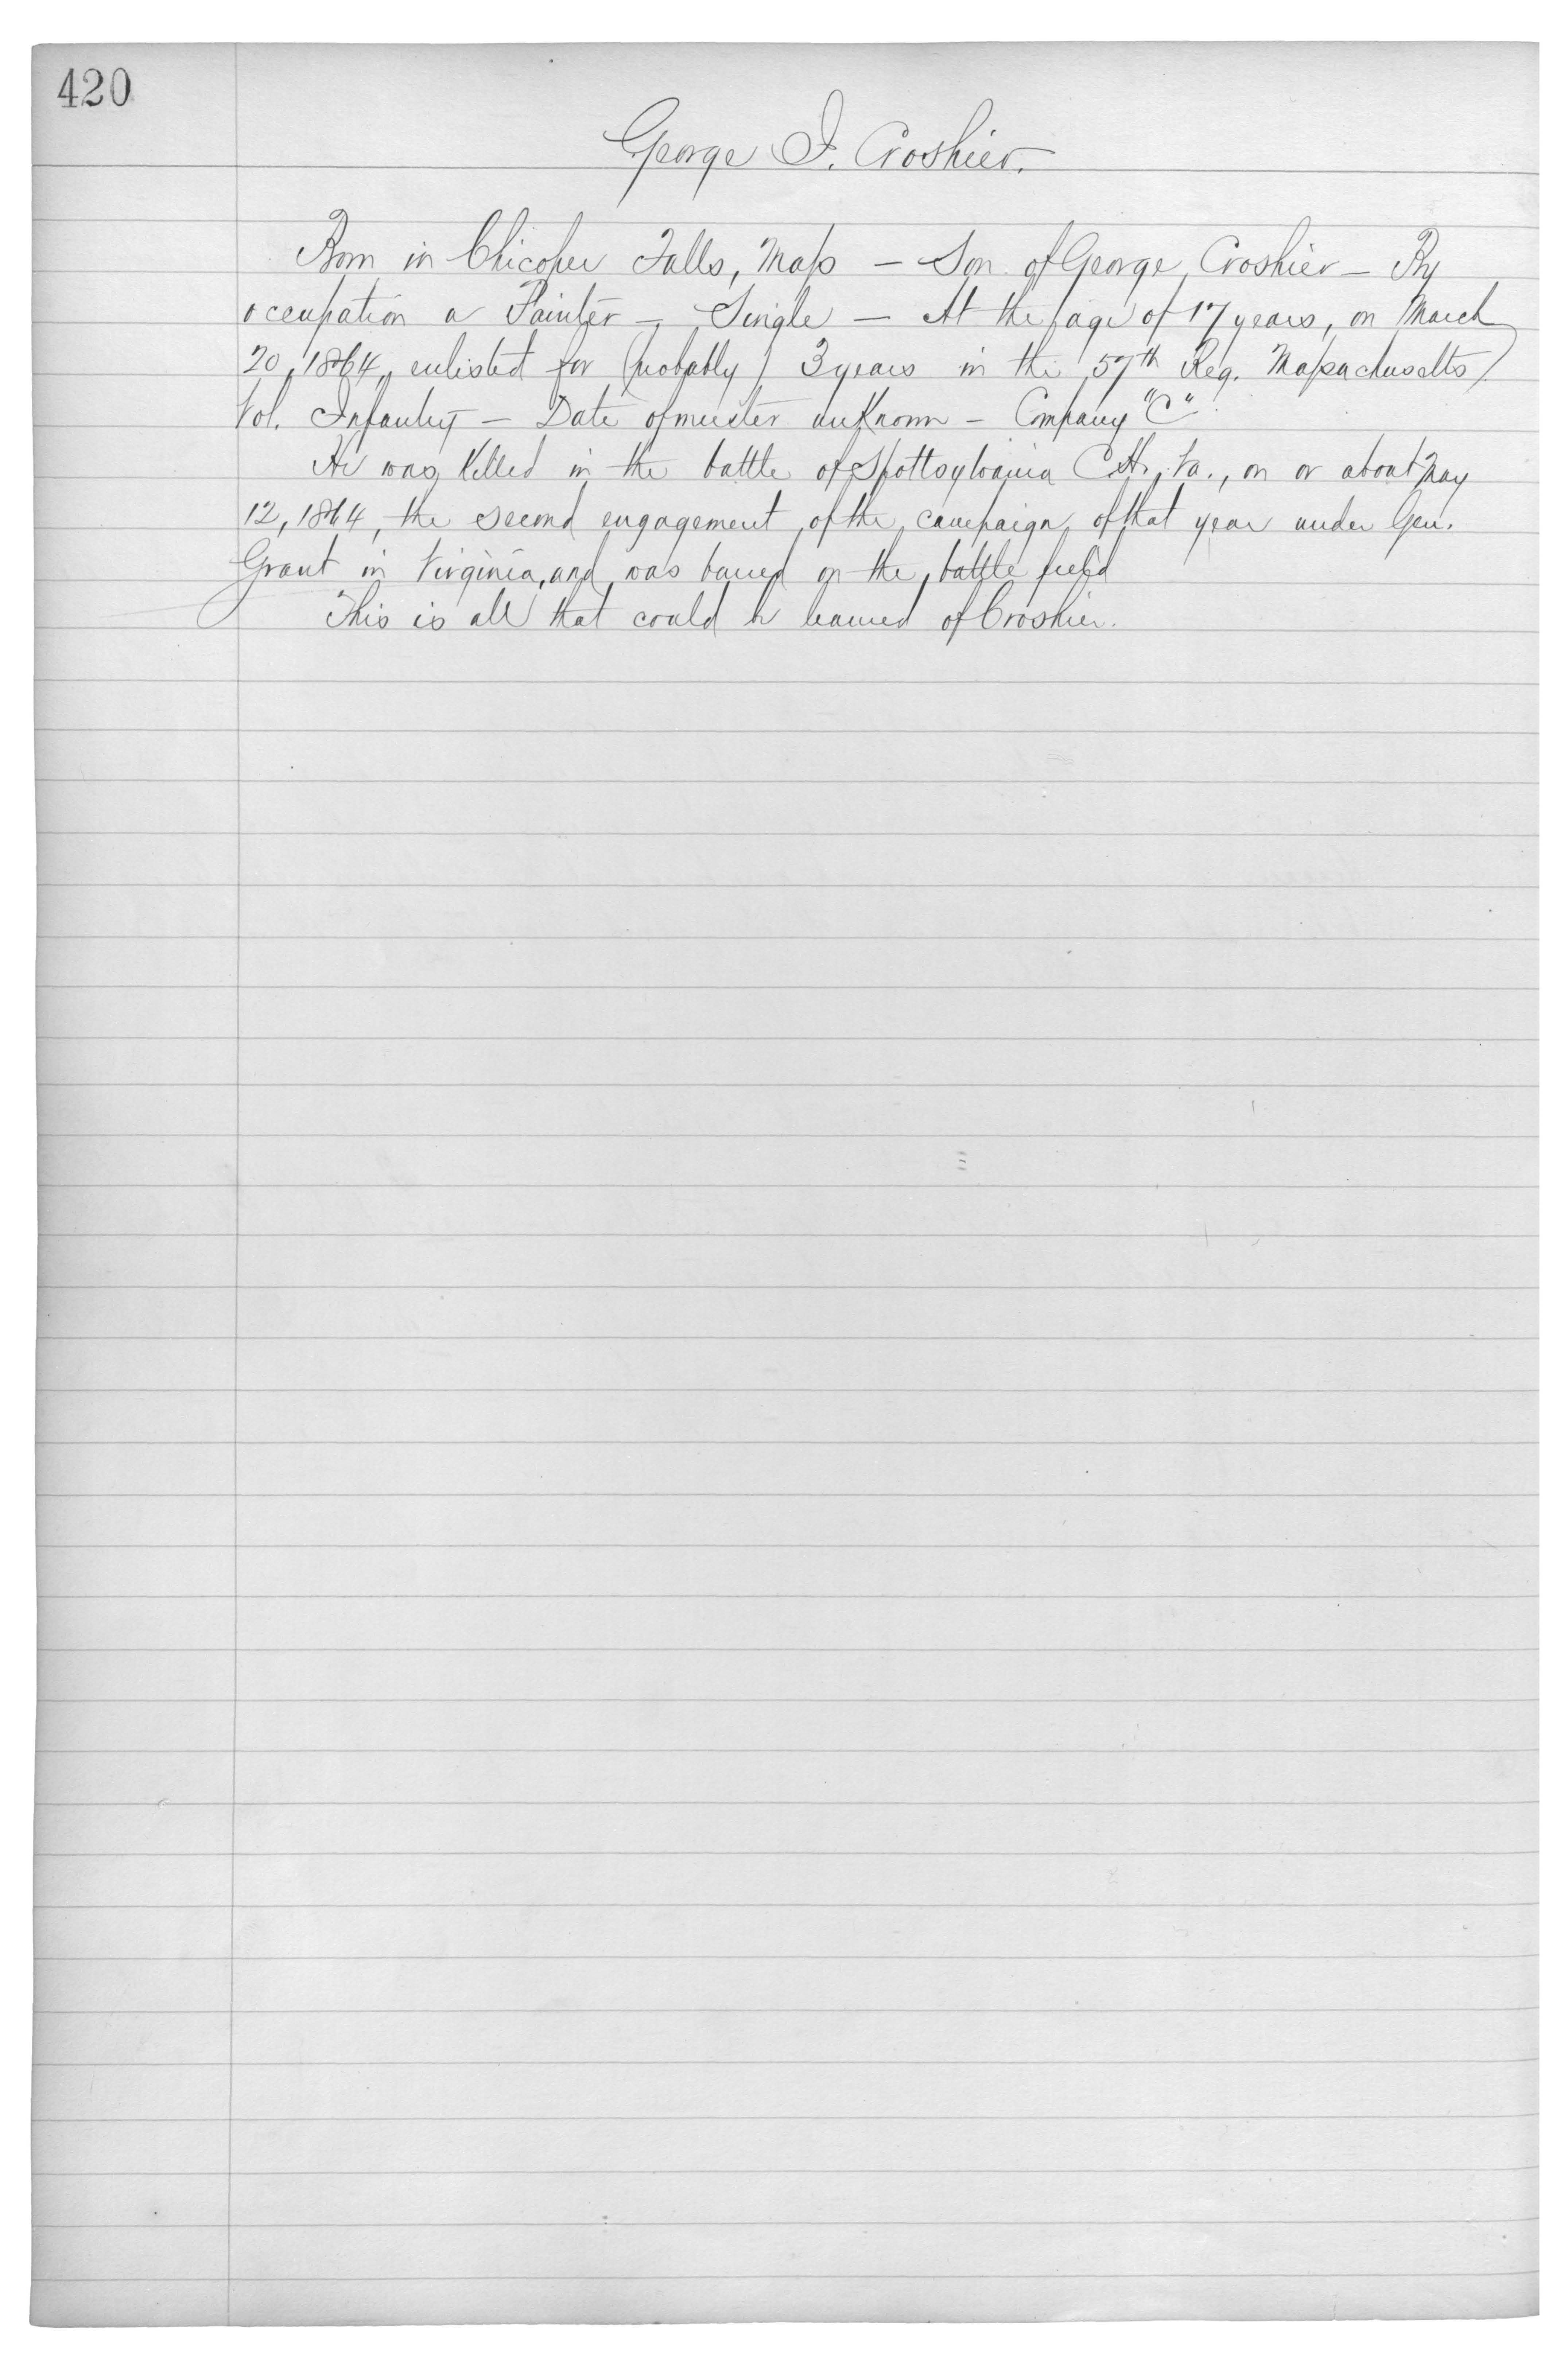 420
George I. Croshier.
Born in Chicopee Falls, Mass — Son of George Croshier — By
occupation a Painter — Single — At the age of 17 years, on March
20, 1864, enlisted for (probably) 3 years in the 57th Reg. Massachusetts
Vol. Infantry — Date of muster unknown — Company "C"
He was killed in the battle of Spottsylvania C.H., Va., on or about May
12, 1864, the second engagement of the campaign of that year under Gen.
Grant in Virginia, and was buried on the battle field
This is all that could be learned of Croshier.